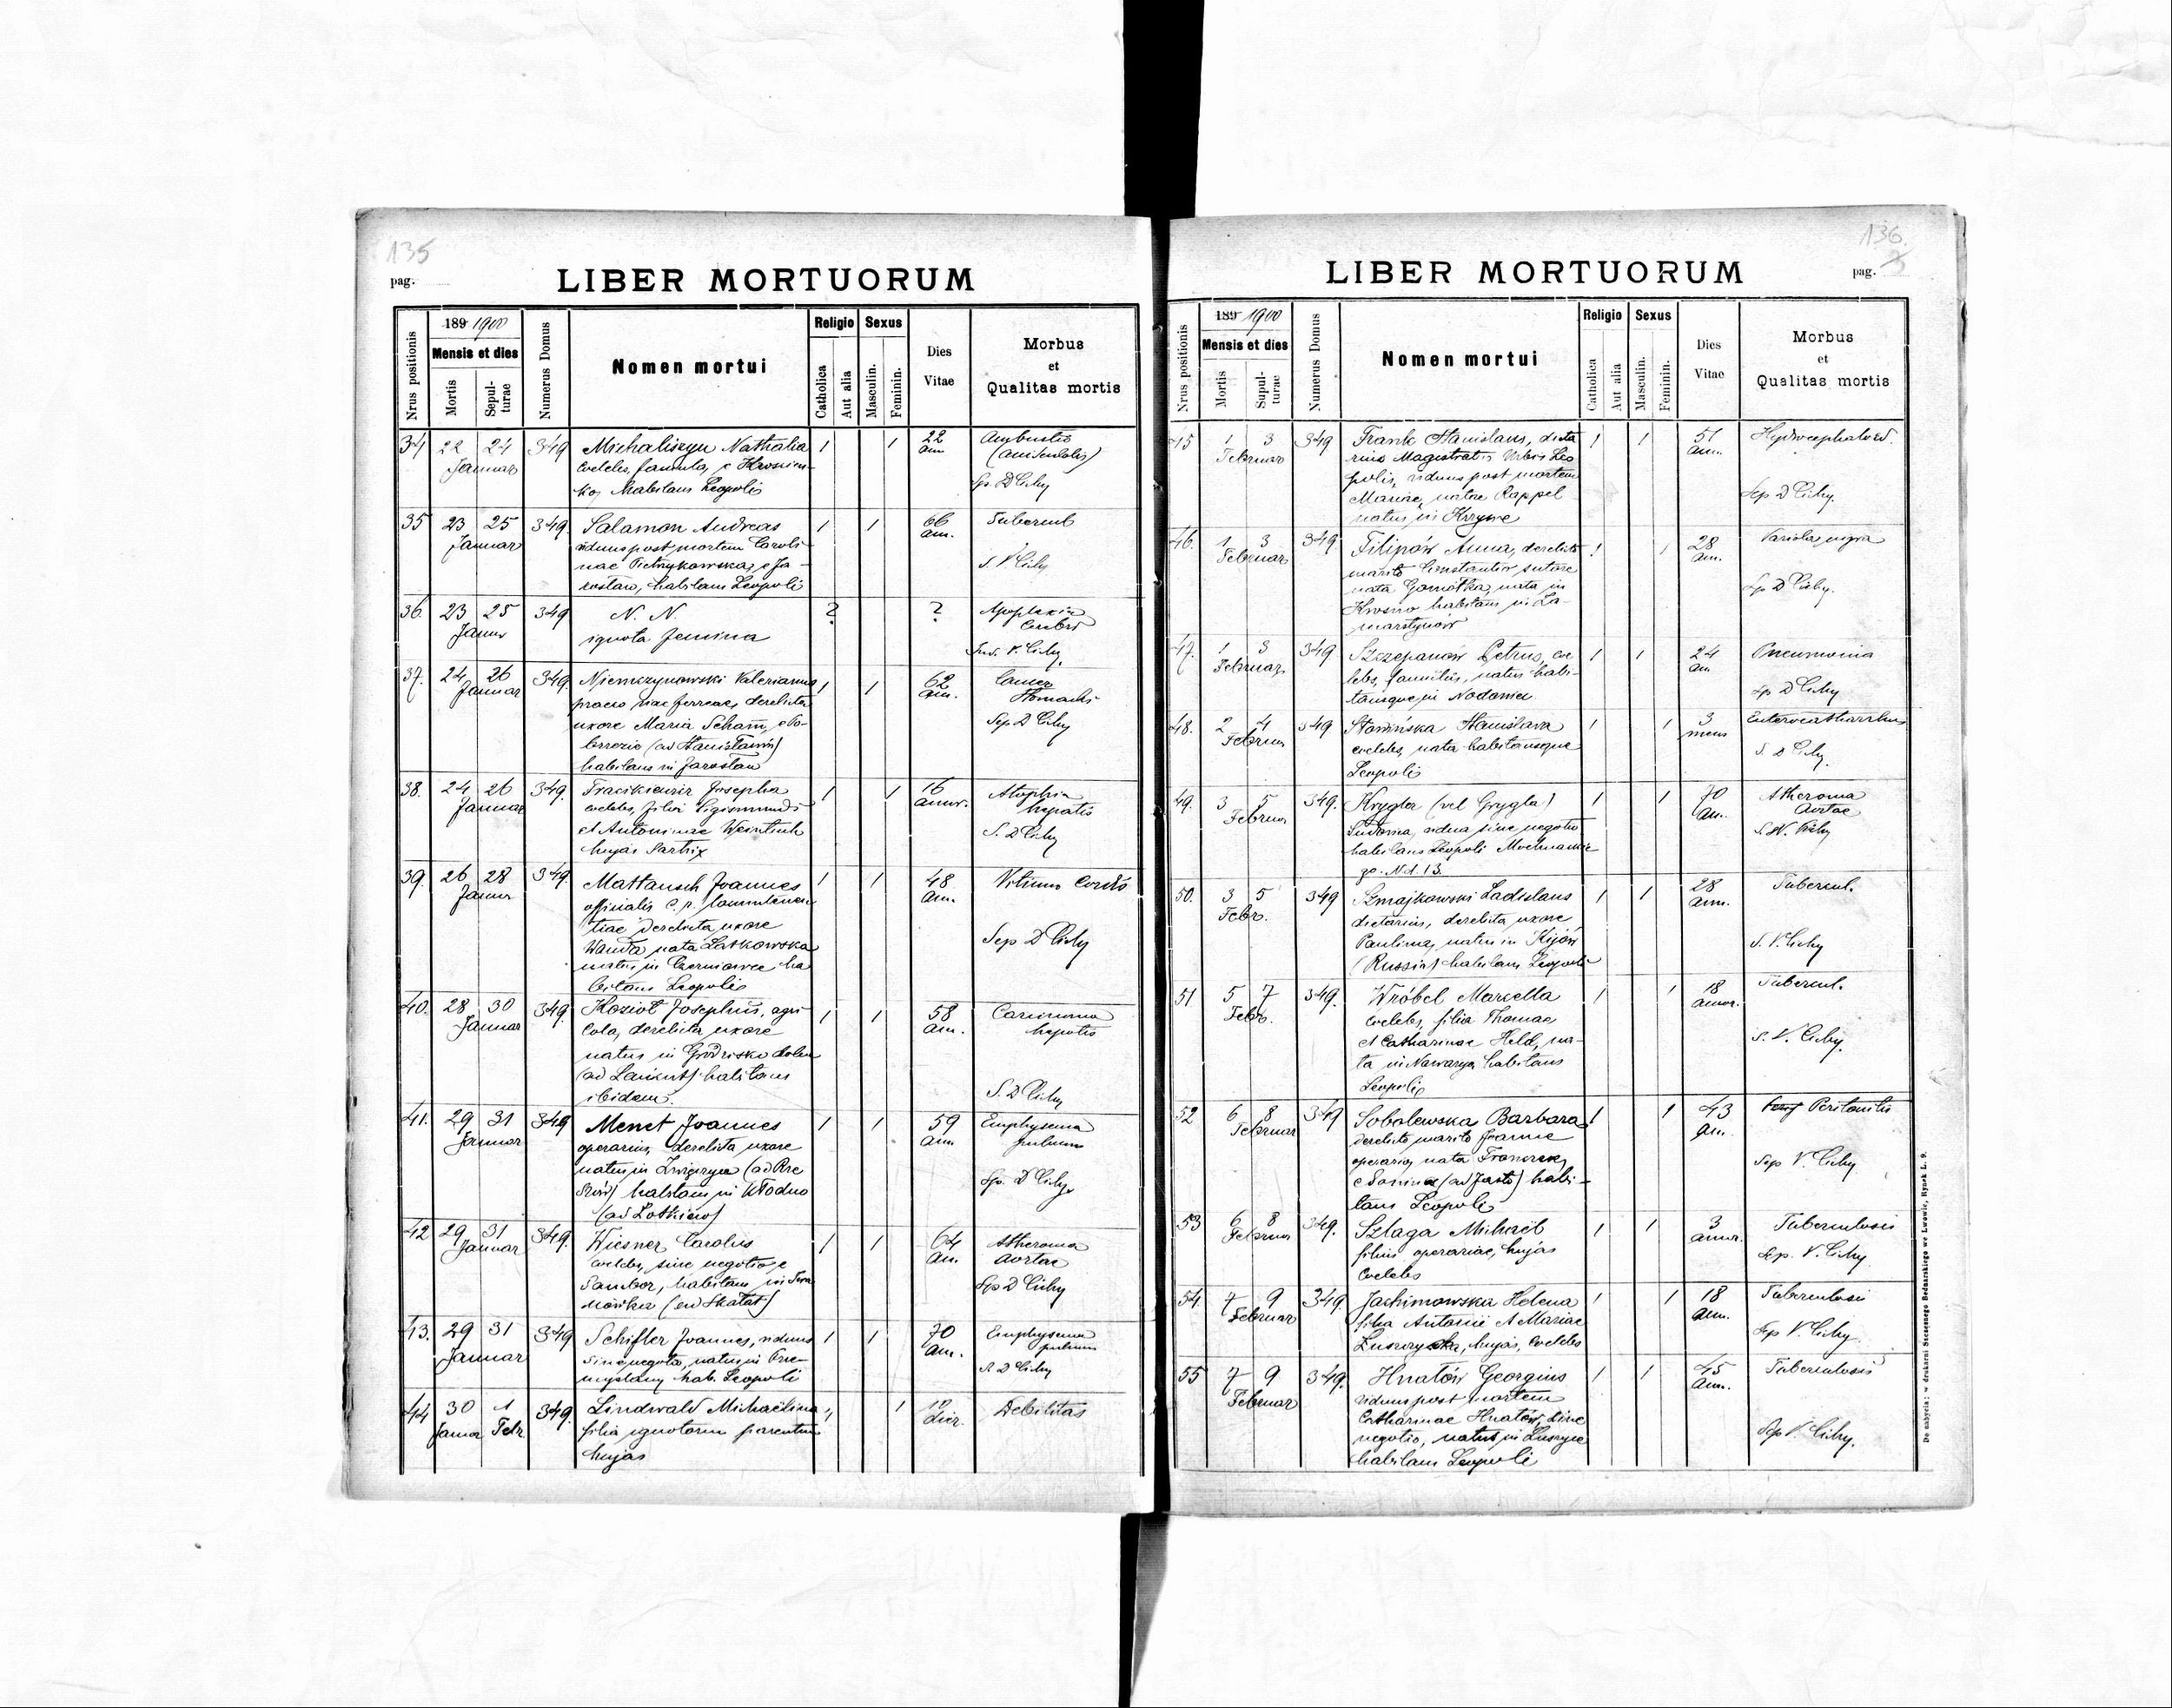 135
pag.
LIBER MORTUORUM
Nrus positionis
189 1900
Mensis et dies
Mortis
Sepul-
turae
Numerus Domus
Nomen mortui
Religio
Catholica
Aut alia
Sexus
Masculin.
Feminin.
Dies
Vitae
Morbus
et
Qualitas mortis
34 22 24 349 Michaliszyn Nathalia 1 1 22 Ambustio
Januar coelebs, famula, e ann
habitans Leopoli
35 23 25 349 Salamon Andreas 1 1 66 Tubercul
Januar viduus post mortem Caroli- ann.
nae Pietrzykowska, e Ja-
rosław, habitans Leopoli
36. 23 25 349 N. N. ? ? Apoplexia
Januar ignota femina cerebri
37. 24 26 349. Niemczynowski Valerianus 1 1 62 Cancer
Januar viae ferreae, derelicta ann. stomachi
uxore Maria
(ad Stanisławów) Sep D Cichy
habitans in Jarosław
38. 24 26 349. Josepha 1 1 16 Atrophia
Januar coelebs, filia Sigismundi annor. hepatis
et Antoninae S. D Cichy
hujas
39. 26 28 349 Mattausch Joannes 1 1 48 Vitium Cordis
Januar officialis c. r. ann.
derelicta uxore
Wanda nata Laskowska Sep D Cichy
natus in ha
bitans Leopoli
40. 28 30 349. Kozioł Josephus, agri- 1 1 58 Carcinoma
Januar cola, derelicta uxore ann. hepatis
natus in Grodzisko dolne
(ad Łańcut) habitans
ibidem. S. D Cichy
41. 29 31 349 Menet Joannes 1 1 59 Emphysema
Januar operarius, derelicta uxore ann. pulmon
natus in (ad Rze
szów) habitans in Kłodno Sep. D Cichy
(ad Żółkiew)
42 29 31 349. Wiesner Carolus 1 1 64 Atheroma
Januar coelebs, sine negotio, e ann. aortae
Sambor, habitans in Sep D Cichy
(ad Skałat)
43. 29 31 349 Schifler Joannes, viduus 1 1 70 Emphysema
Januar sine negotio, natus in Prze- ann. pulmon
myślany hab. Leopoli S. D Cichy
44 30 1 349. Lindwald Michaëlina 1 1 10 Debilitas
Januar Febr. filia ignotorum parentum dier.
hujas
136.
3
pag.
LIBER MORTUORUM
Nrus positionis
189 1900
Mensis et dies
Mortis
Sepul-
turae
Numerus Domus
Nomen mortui
Religio
Catholica
Aut alia
Sexus
Masculin.
Feminin.
Dies
Vitae
Morbus
et
Qualitas mortis
45 1 3 349 Frank Stanislaus, dieta 1 1 51
Februar rius Magistratus Urbis Leo ann.
polis, viduus post mortem
Mariae, natae Rappel Sep D Cichy.
natus in
46. 1 3 349. Filipów Anna, derelicta 1 1 28 Variola nigra
Februar marito Constantino sutore ann.
nata nata in Sep D Cichy.
Krosno habitans in Za-
marstynów
47. 1 3 349 Szczepanów Petrus, coe 1 1 24 Pneumonia
Februar lebs, famulus, natus habi- ann
tansque in Sep D Cichy
48. 2 4 349 Stanislava 1 1 3 Enterocatharrhus
Februar coelebs, nata habitansque mens
Leopoli S. D Cichy.
49. 3 5 349. Krygla (vel Grygla) 1 1 70 Atheroma
Februar vidua sine negotio ann. aortae
habitans Leopoli S. V. Cichy
N. 13.
50. 3 5 349 Szmajkowski Ladislaus 1 1 28 Tubercul.
Febr. dietarius, derelicta uxore ann.
Paulina, natus in Kijów
(Russia) habitans Leopoli S. V. Cichy
51 5 7 349. Wróbel Marcella 1 1 18 Tubercul.
Febr. coelebs, filia Thomae annor.
et Catharinae Held, na-
ta in Nawarya habitans S. V. Cichy.
Leopoli
52 6 8 349 Sobolewska Barbara 1 1 43 Peritonitis
Februar derelicta marito Joanne ann.
operario, nata
(ad Jasło) habi- Sep V. Cichy
tans Leopoli
53 6 8 349. Szlaga Michaël 1 1 3 Tuberculosis
Februar filius operariae, hujas annor. Sep. V. Cichy
Coelebs
54. 7 9 349. Jachimowska Helena 1 1 18 Tuberculosis
Februar filia Antonii et Mariae ann.
hujas, coelebs Sep V. Cichy.
55 7 9 349. Hnatów Georgius 1 1 45 Tuberculosis
Februar viduus post mortem ann.
Catharinae Hnatów, sine
negotio, natus in Sep V. Cichy.
habitans Leopoli
De nabycia: w drukarni Szczęsnego Bednarskiego we Lwowie, Rynek L. 9.